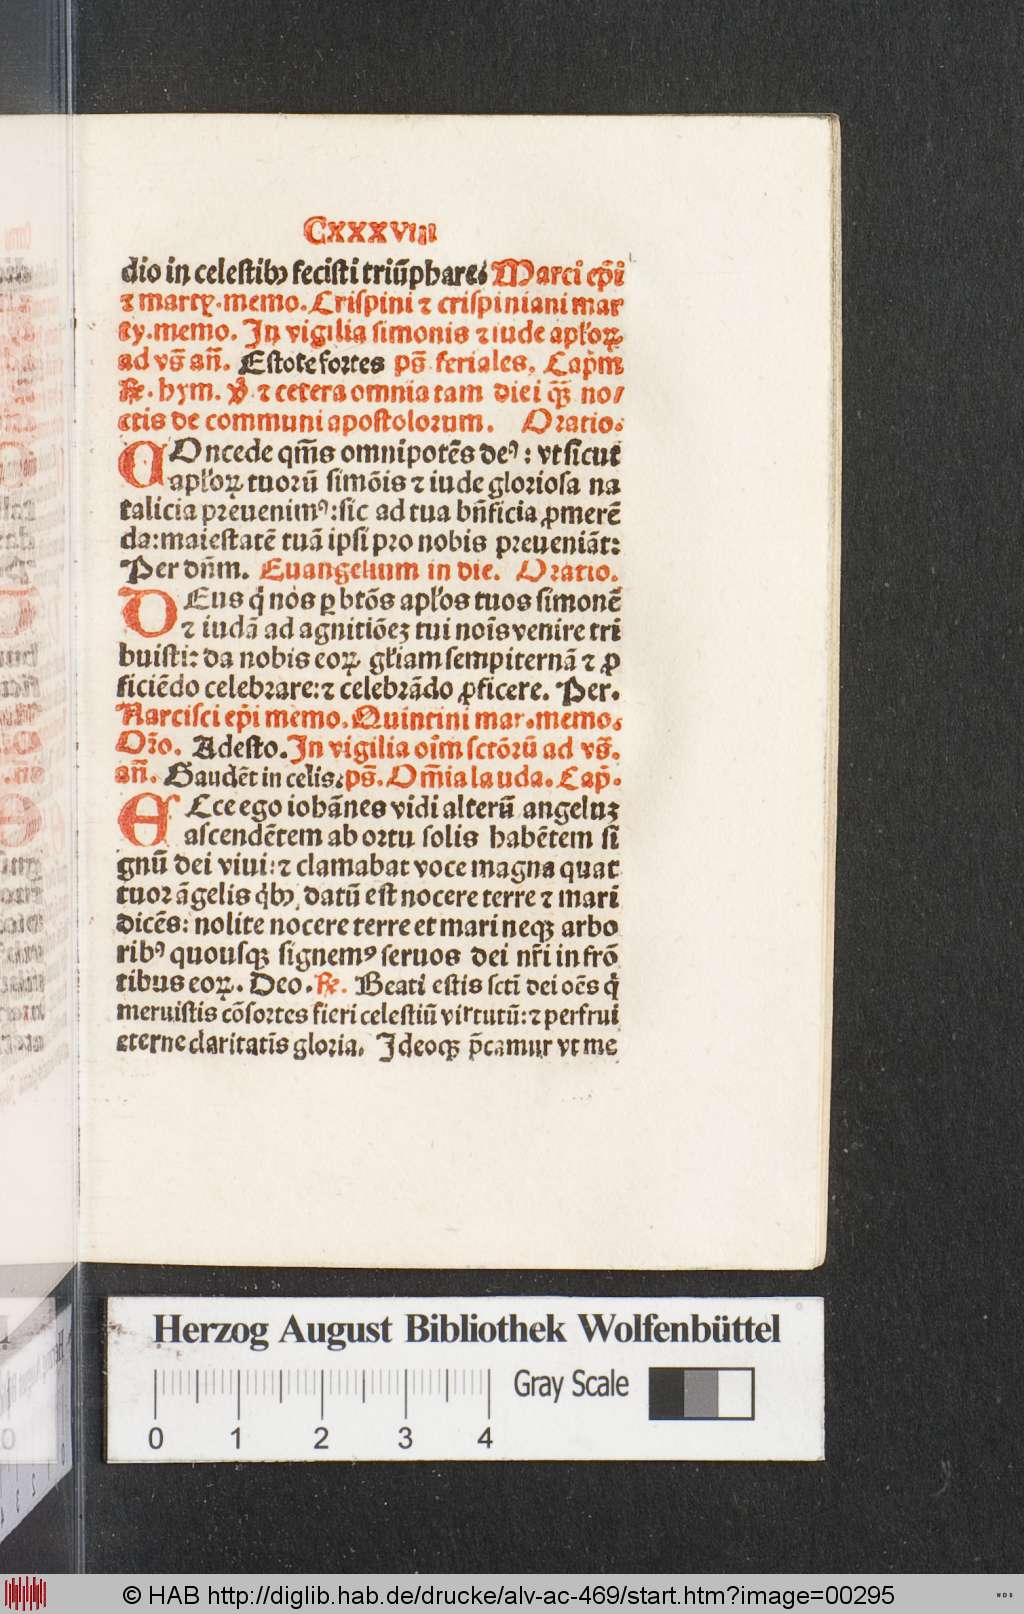 CXXXVIII
dio in celestibꝫ fecisti triūphare. Marci ep̄i
⁊ martꝝ. memo. Crispini ⁊ crispiniani mar
ty. memo. In vigilia simonis ⁊ iude apl'oꝝ
ad vs̄ an̄. Estote fortes ps̄ feriales. Cap̄m
℟. hym. ꝟ ⁊ cetera omnia tam diei q̄ꝫ no/
ctis de communi apostolorum. Oratio.
COncede qm̄s omnipotēs deꝰ: vt sicut
apl'oꝝ tuorū simōis ⁊ iude gloriosa na
talicia preuenimꝰ: sic ad tua bn̄ficia ꝓmerē
da: maiestatē tuā ipsi pro nobis preueniāt:
Per dn̄m. Euangelium in die. Oratio.
DEus q̇ nos ꝑ btōs apl'os tuos simonē
⁊ iudā ad agnitiōeꝫ tui noīs venire tri
buisti: da nobis eoꝝ gl'iam sempiternā ⁊ ꝓ
ficiēdo celebrare: ⁊ celebrādo ꝓficere. Per.
Narcisci ep̄i memo. Quintini mar. memo.
Orō. Adesto. In vigilia oīm sctōrū ad vs̄.
an̄. Gaudēt in celis. ps̄. Om̄ia lauda. Cap̄.
ECce ego iohānes vidi alterū angeluꝫ
ascendētem ab ortu solis habētem si
gnū dei viui: ⁊ clamabat voce magna quat
tuor āgelis q̇bꝫ datū est nocere terre ⁊ mari
dicēs: nolite nocere terre et mari neqꝫ arbo
ribꝰ quousqꝫ signemꝰ seruos dei nr̄i in frō
tibus eoꝝ. Deo. ℟. Beati estis sctī dei oēs q̇
meruistis cōsortes fieri celestiū virtutū: ⁊ perfrui
eterne claritatis gloria. Ideoqꝫ p̄camur vt me
Herzog August Bibliothek Wolfenbüttel
Gray Scale
0 1 2 3 4
© HAB http://diglib.hab.de/drucke/alv-ac-469/start.htm?image=00295